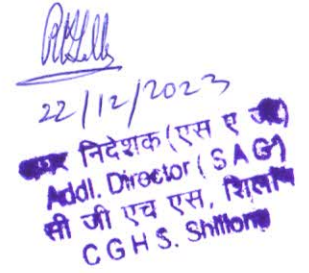 22/12/2023
निदेशक (एस ए जी)
Addl. Director (SAG)
सी जी एच एस, शिलांग
CGHS. Shillong